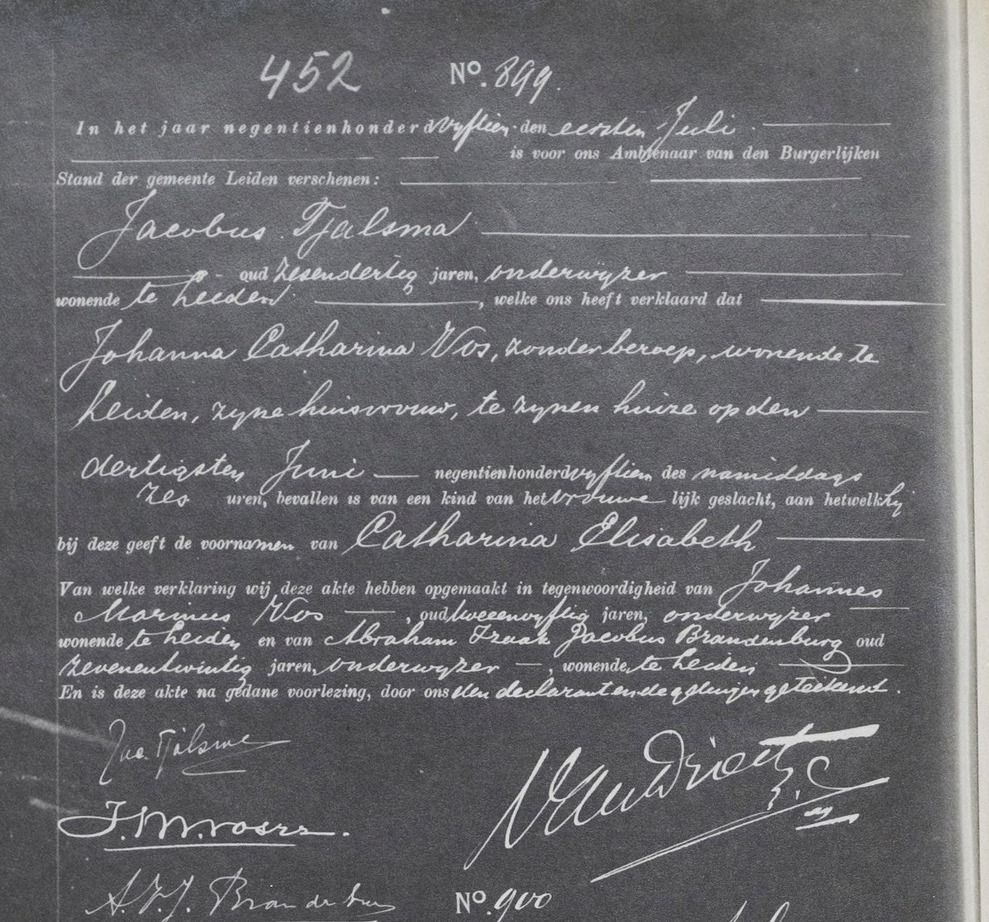 452 No. 899.
In het jaar negentienhonderd vyftien den eersten Juli
is voor ons Ambtenaar van den Burgerlijken
Stand der gemeente Leiden verschenen:
Jacobus Tjalsma
oud zesendertig jaren, onderwyzer
wonende te Leiden, welke ons heeft verklaard dat
Johanna Catharina Vos, zonder beroep, wonende te
Leiden, zyne huisvrouw, te zynen huize op den
dertigsten Juni negentienhonderd vyftien des namiddags
zes uren, bevallen is van een kind van het vrouwelijk geslacht, aan hetwelk hij
bij deze geeft de voornamen van Catharina Elisabeth
Van welke verklaring wij deze akte hebben opgemaakt in tegenwoordigheid van Johannes
Marinus Vos, oud tweeenvyftig jaren, onderwyzer
wonende te Leiden en van Abraham Izaak Jacobus Brandenburg oud
zevenentwintig jaren, onderwyzer, wonende te Leiden
En is deze akte na gedane voorlezing, door ons den declarant en de getuigen geteekend.
Jac. Tjalsma
J. M. Vos
A. I. J. Brandenburg
No. 900